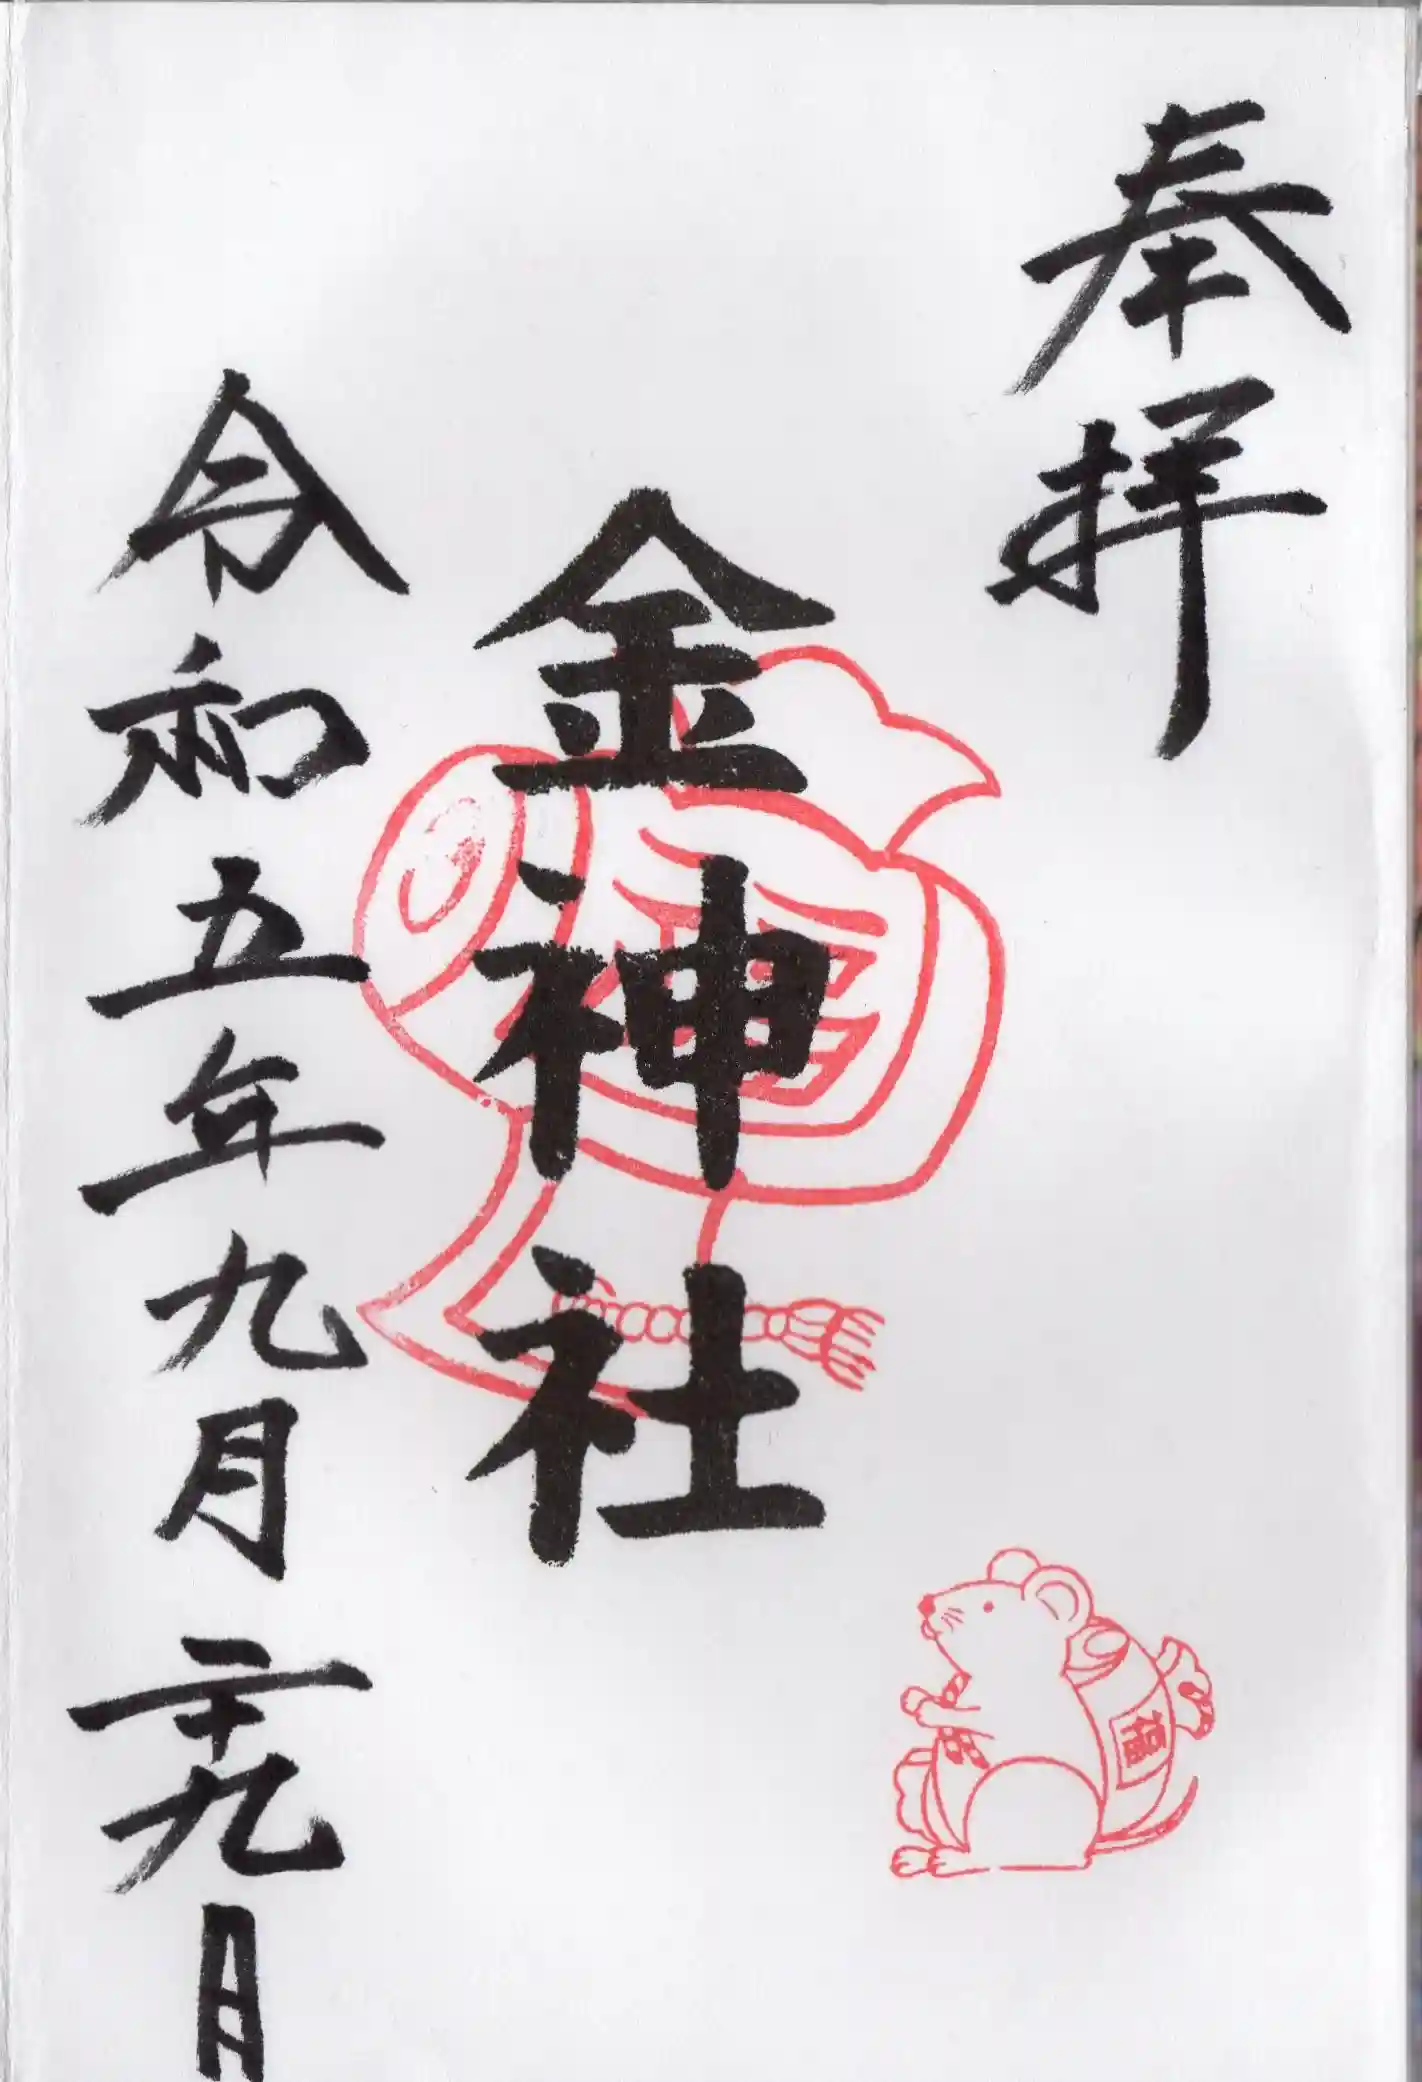 奉拝
金神社
令和五年九月二十九日
福